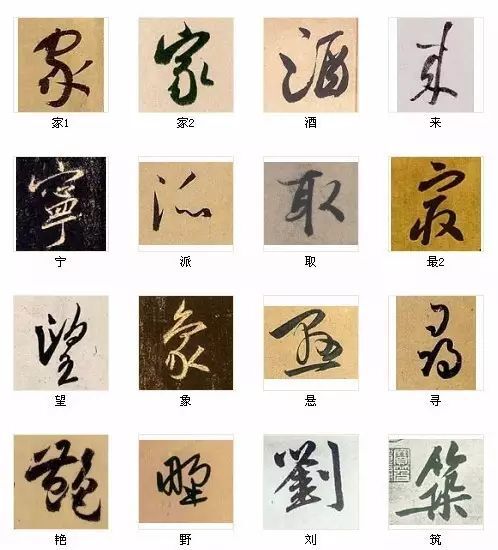 家 家 酒 来
家1 家2 酒 来
寧 派 取 㝡
宁 派 取 最2
望 象 懸 尋
望 象 悬 寻
艷 野 劉 築
艳 野 刘 筑